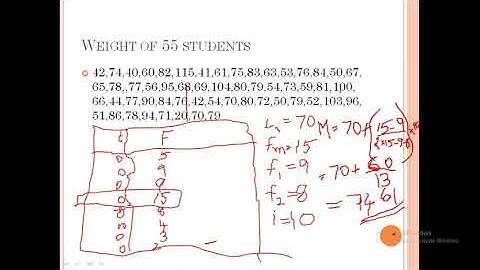 WEIGHT OF 55 STUDENTS
42,74,40,60,82,115,41,61,75,83,63,53,76,84,50,67,
65,78,,77,56,95,68,69,104,80,79,54,73,59,81,100,
66,44,77,90,84,76,42,54,70,80,72,50,79,52,103,96,
51,86,78,94,71,20,70,79
t F
0 5
0 9
0 9
0 15
0 8
0 4
0 3
0 2
L1 = 70
fm = 15
f1 = 9
f2 = 8
i = 10
M = 70 + (15-9
= 70 + 60/13
= 74.61